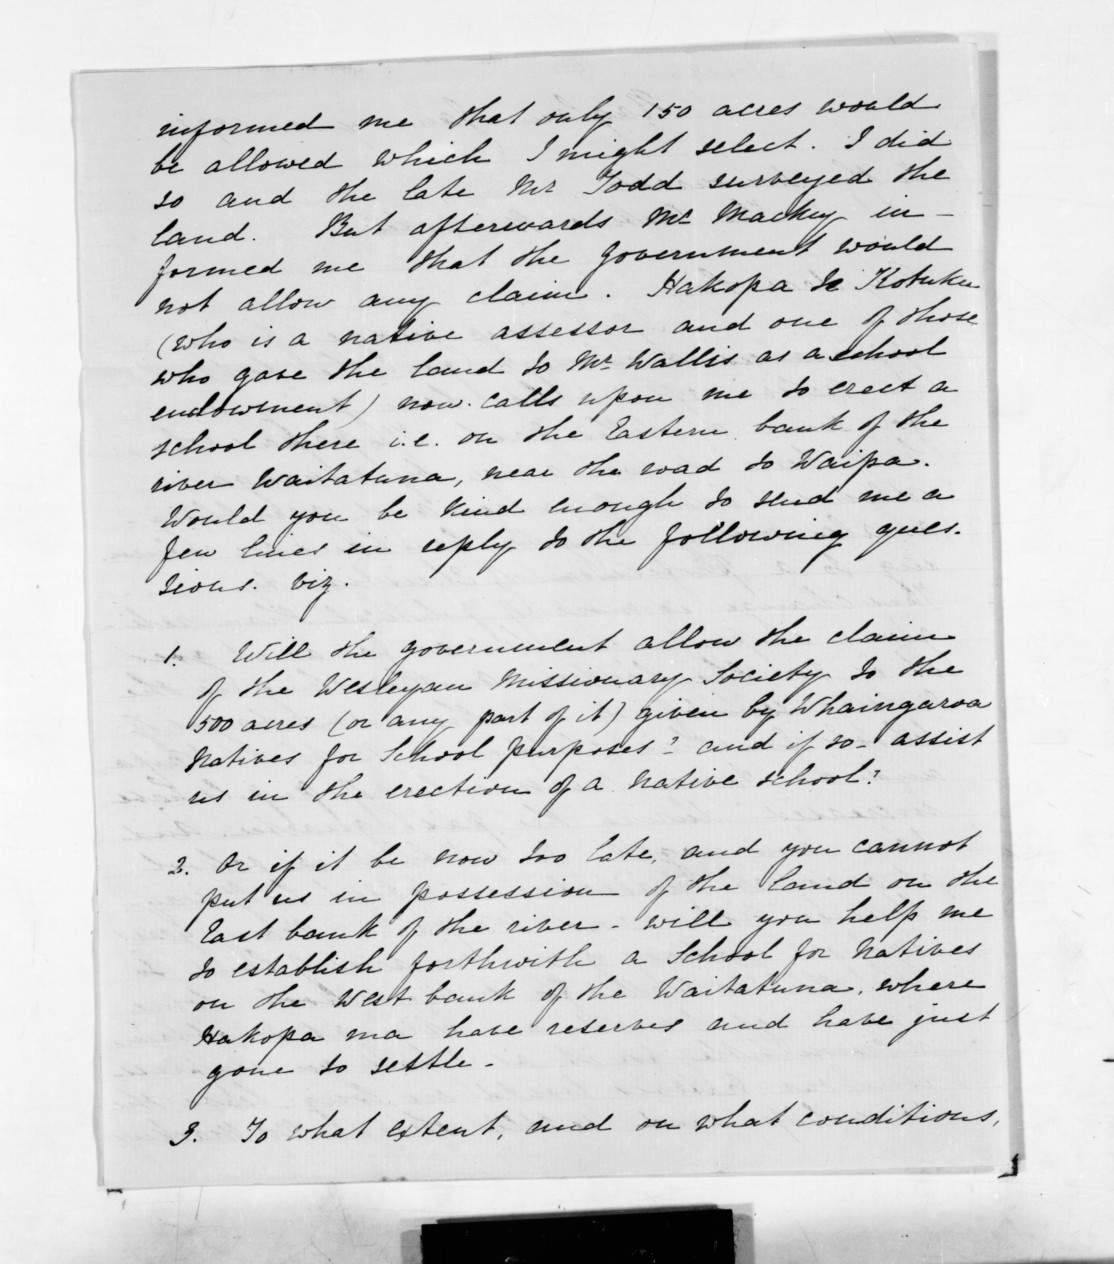 informed me that only 150 acres would
be allowed which I might select. I did
so and the late Mr Todd surveyed the
land. But afterwards Mr Mackay in-
formed me that the government would
not allow any claim. Hakopa Te Kotuku
(who is a native assessor and one of those
who gave the land to Mr Wallis as a school
endowment) now calls upon me to erect a
school there i.e. on the Eastern bank of the
river Waitatuna, near the road to Waipa.
Would you be kind enough to send me a
few lines in reply to the following ques-
tions. viz.
1. Will the government allow the claim
of the Wesleyan Missionary Society to the
500 acres (or any part of it) given by Whaingaroa
Natives for School purposes? and if so - assist
us in the erection of a native school?
2. Or if it be now too late, and you cannot
put us in possession of the land on the
East bank of the river - will you help me
to establish forthwith a School for Natives
on the West bank of the Waitatuna, where
Hakopa ma have reserves and have just
gone to settle -
3. To what extent, and on what conditions,